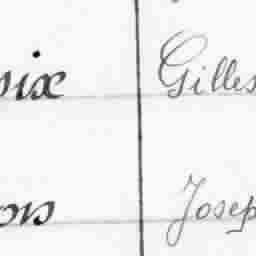 six Gilles
ons Josep